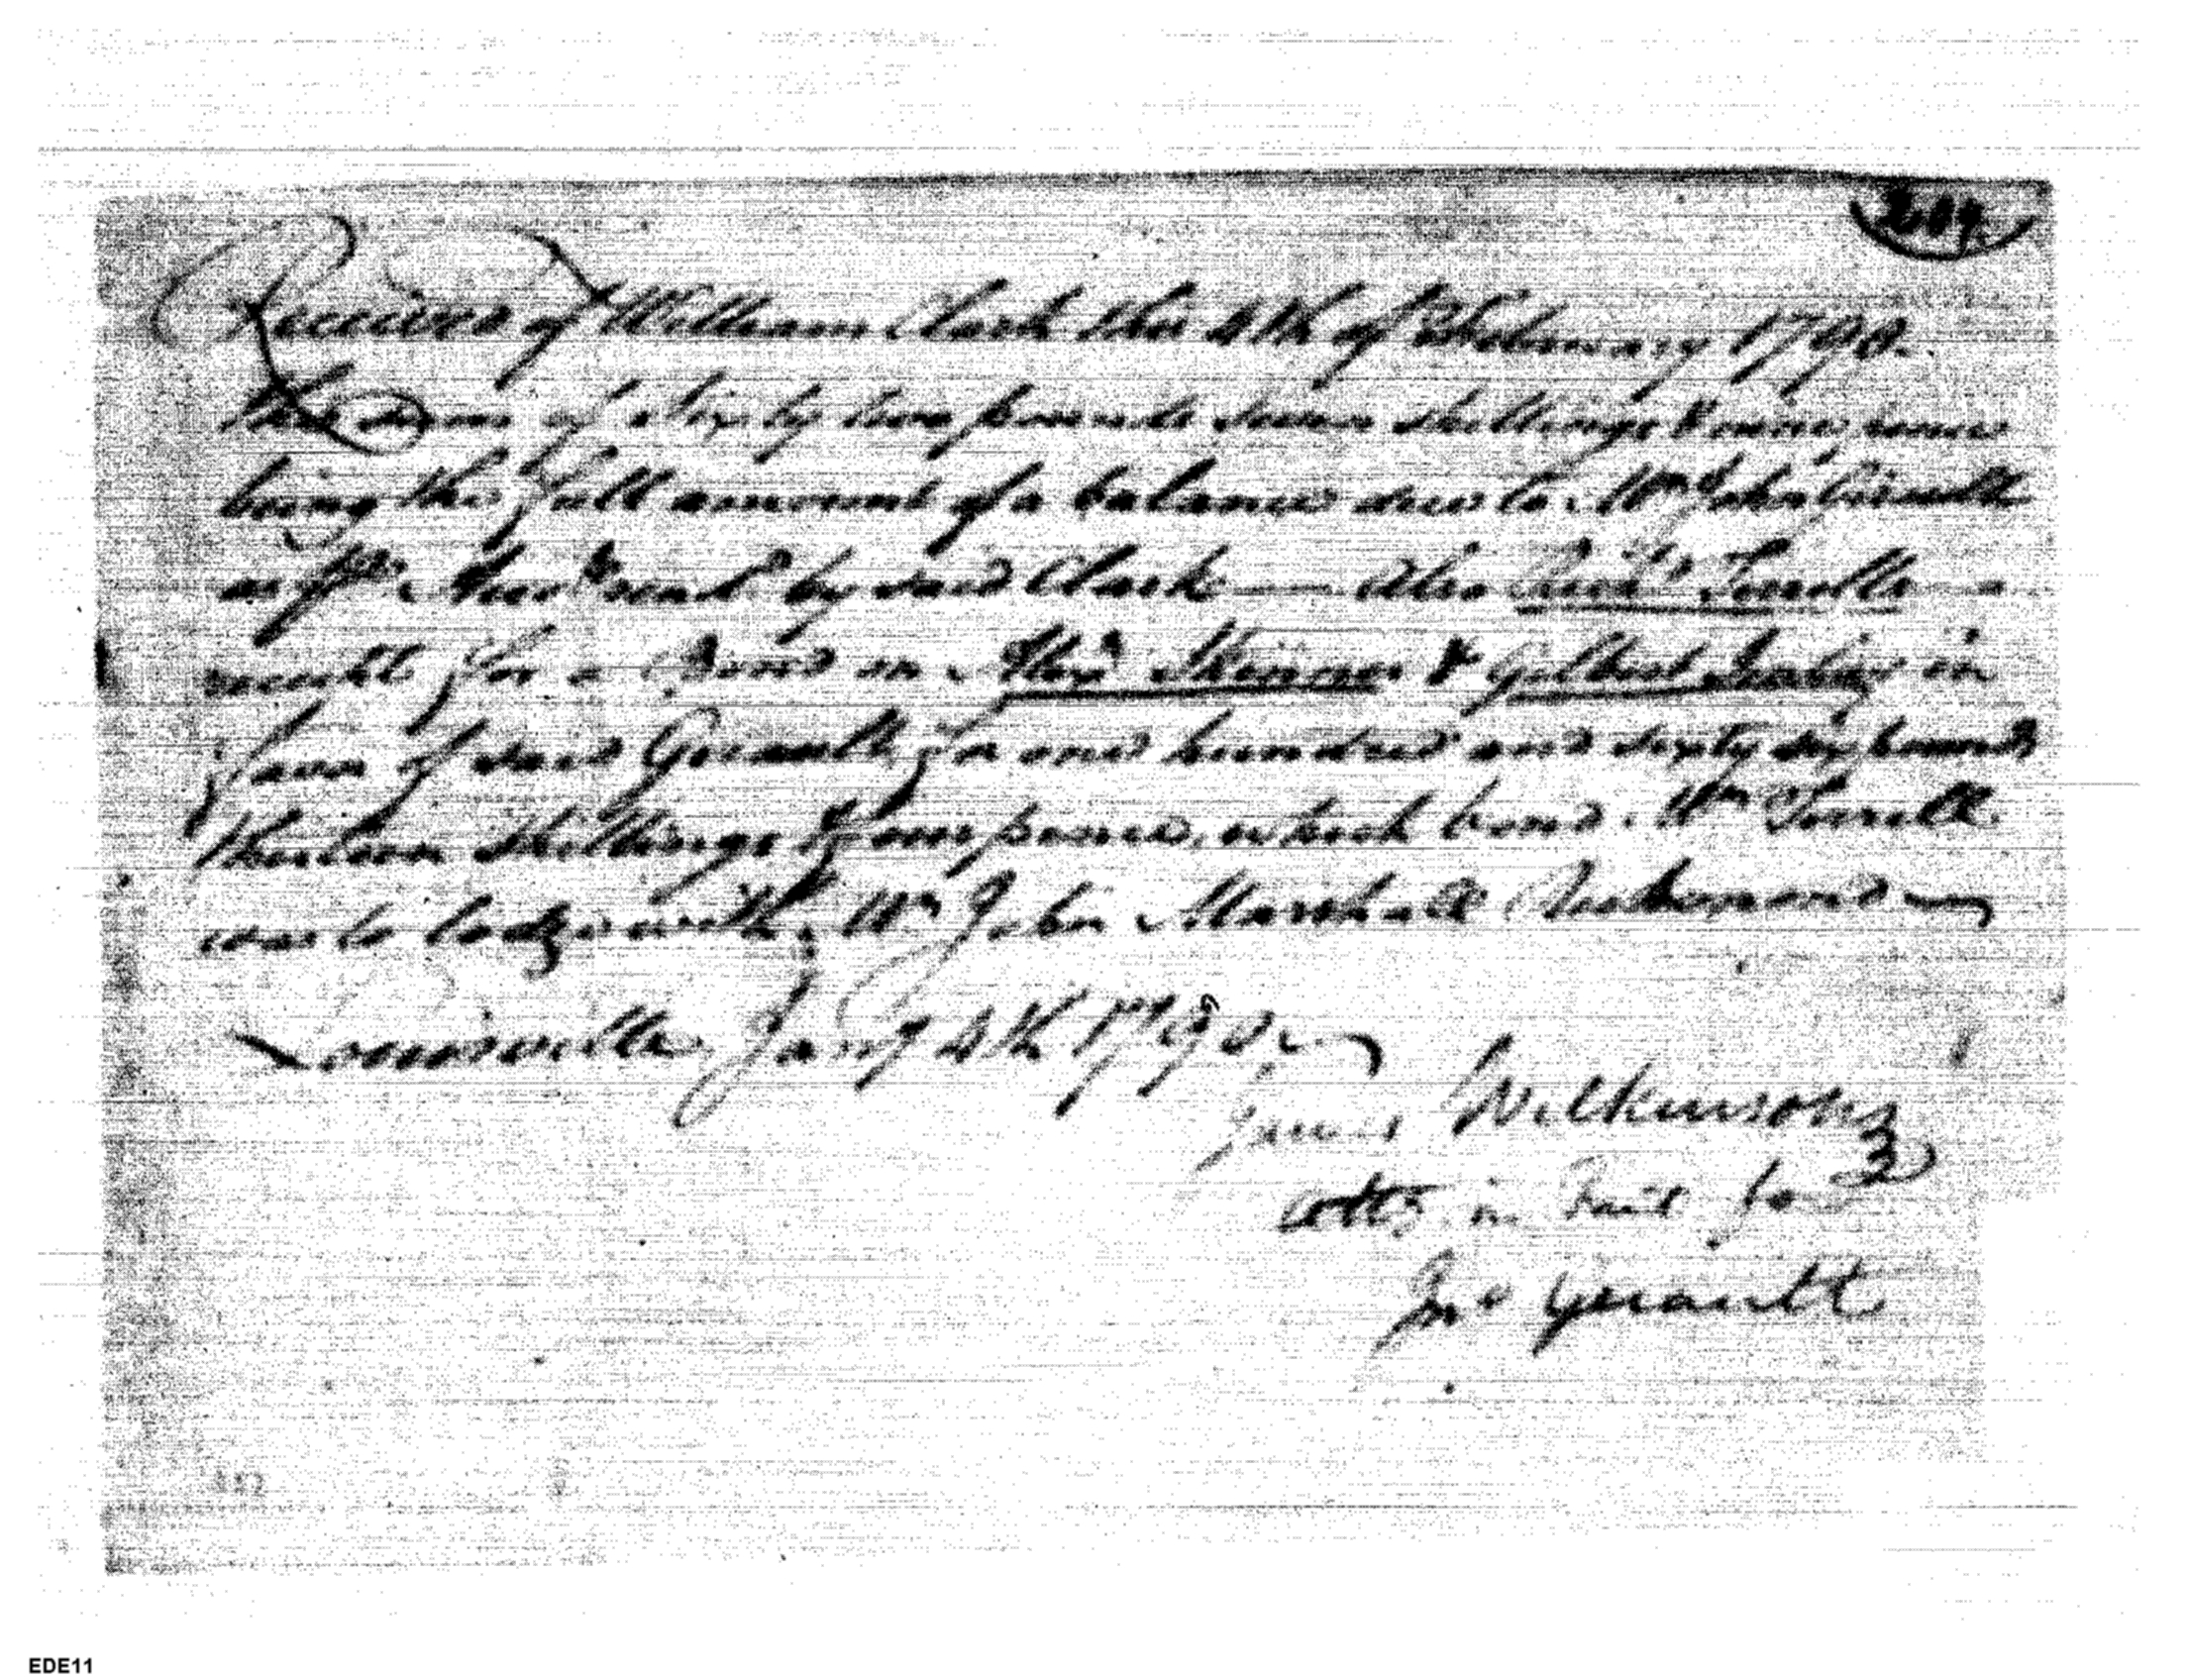 Received of William Clark this 4th of February 1790.
the sum of Sixty two pounds seven shillings &
being the full amount of a balance due to Mr John Girault
as pr Acct rend by said Clark — also Richd Terrells a
receit for a Bond on Alexr Skinner & Gilbert in
favor of said Girault for one hundred and sixty six pounds
thirteen shillings & pence, which bond Mr Terrell
was to lodge with Mr John Marshall Richmond
Louisville Jany 4th 1790
James Wilkinson
atty in fact for
Jno Girault
EDE11